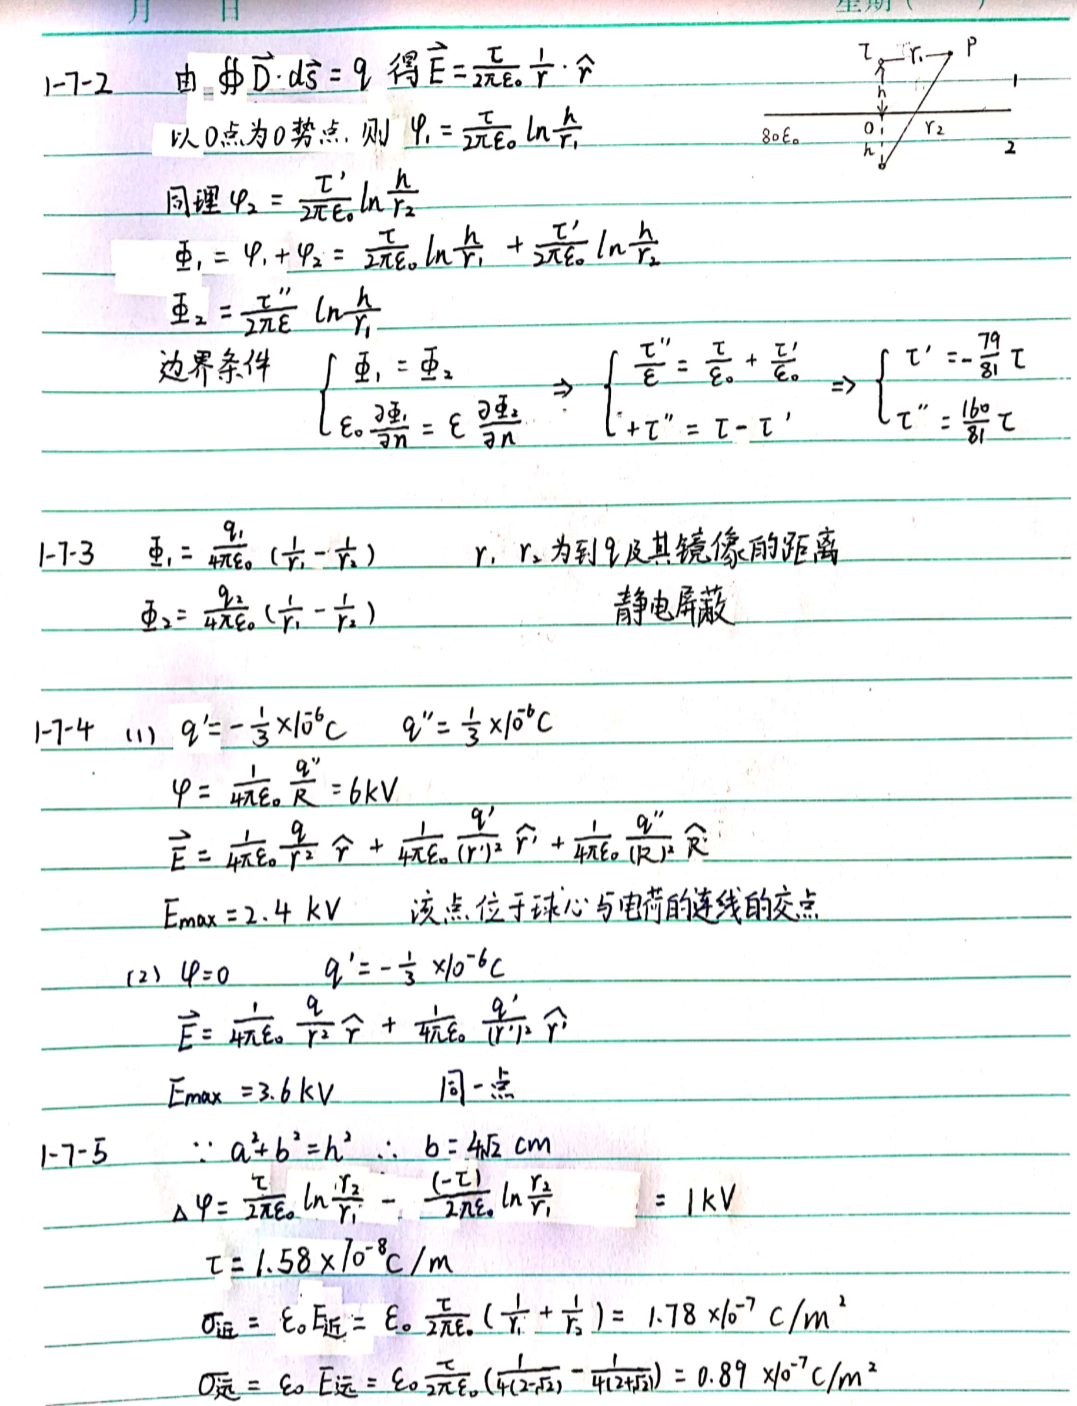 月 日 星期 (
1-7-2 由 ∯ D⃗·ds⃗ = q 得 E⃗ = τ/2πε₀ 1/r · r̂
τ r₁ P
h 1
80ε₀ 0 r₂
h 2
以0点为0势点. 则 φ₁ = τ/2πε₀ ln h/r₁
同理 φ₂ = τ'/2πε₀ ln h/r₂
Φ₁ = φ₁ + φ₂ = τ/2πε₀ ln h/r₁ + τ'/2πε₀ ln h/r₂
Φ₂ = τ''/2πε ln h/r₁
边界条件 { Φ₁ = Φ₂ ⇒ { τ''/ε = τ/ε₀ + τ'/ε₀ ⇒ { τ' = -79/81 τ
ε₀ ∂Φ₁/∂n = ε ∂Φ₂/∂n +τ'' = τ - τ' τ'' = 160/81 τ
1-7-3 Φ₁ = q₁/4πε₀ (1/r₁ - 1/r₂) r₁ r₂ 为到q及其镜像的距离
Φ₂ = q₂/4πε₀ (1/r₁ - 1/r₂) 静电屏蔽
1-7-4 (1) q' = -1/3 ×10⁻⁶C q'' = 1/3 ×10⁻⁶C
φ = 1/4πε₀ q''/R = 6kV
E⃗ = 1/4πε₀ q/r² r̂ + 1/4πε₀ q'/(r')² r̂' + 1/4πε₀ q''/(R)² R̂
Emax = 2.4 kV 该点位于球心与电荷的连线的交点
(2) φ=0 q' = -1/3 ×10⁻⁶C
E⃗ = 1/4πε₀ q/r² r̂ + 1/4πε₀ q'/(r')² r̂'
Emax = 3.6 kV 同一点
1-7-5 ∵ a²+b²=h² ∴ b = 4√2 cm
Δφ = τ/2πε₀ ln r₂/r₁ - (-τ)/2πε₀ ln r₂/r₁ = 1kV
τ = 1.58×10⁻⁸C/m
σ近 = ε₀E近 = ε₀ τ/2πε₀ (1/r₁ + 1/r₂) = 1.78 ×10⁻⁷ C/m²
σ远 = ε₀ E远 = ε₀ τ/2πε₀ (1/4(2-√2) - 1/4(2+√2)) = 0.89 ×10⁻⁷C/m²